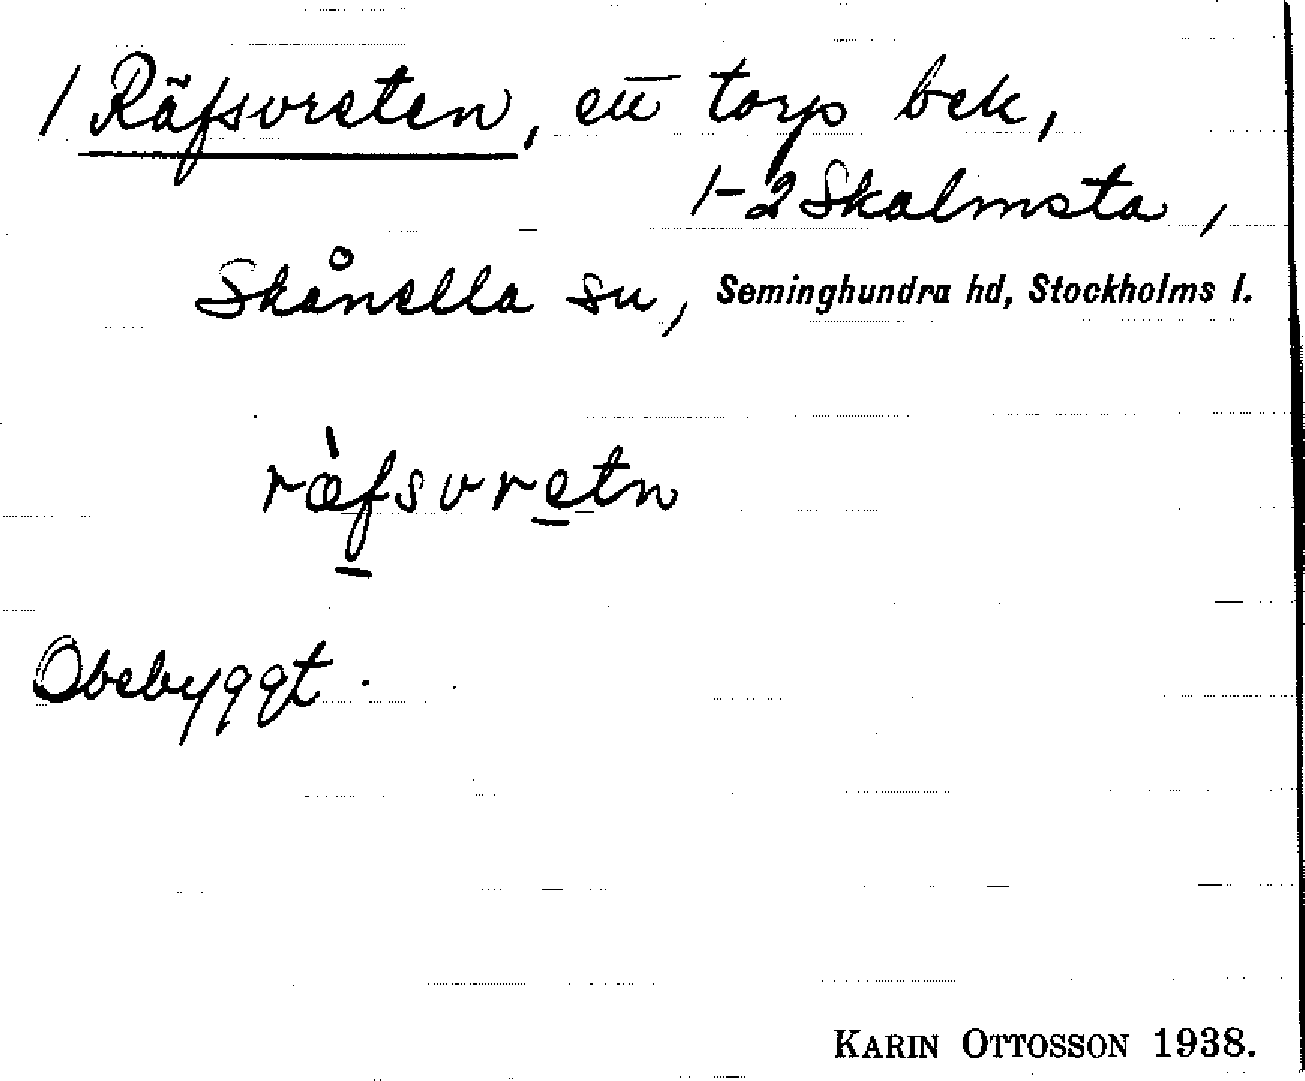 1 Räfsvreten, ett torp bek,
1-2 Skalmsta,
Skånella sn, Seminghundra hd, Stockholms l.
ræ̀fsvretn
Obebyggt.
KARIN OTTOSSON 1938.